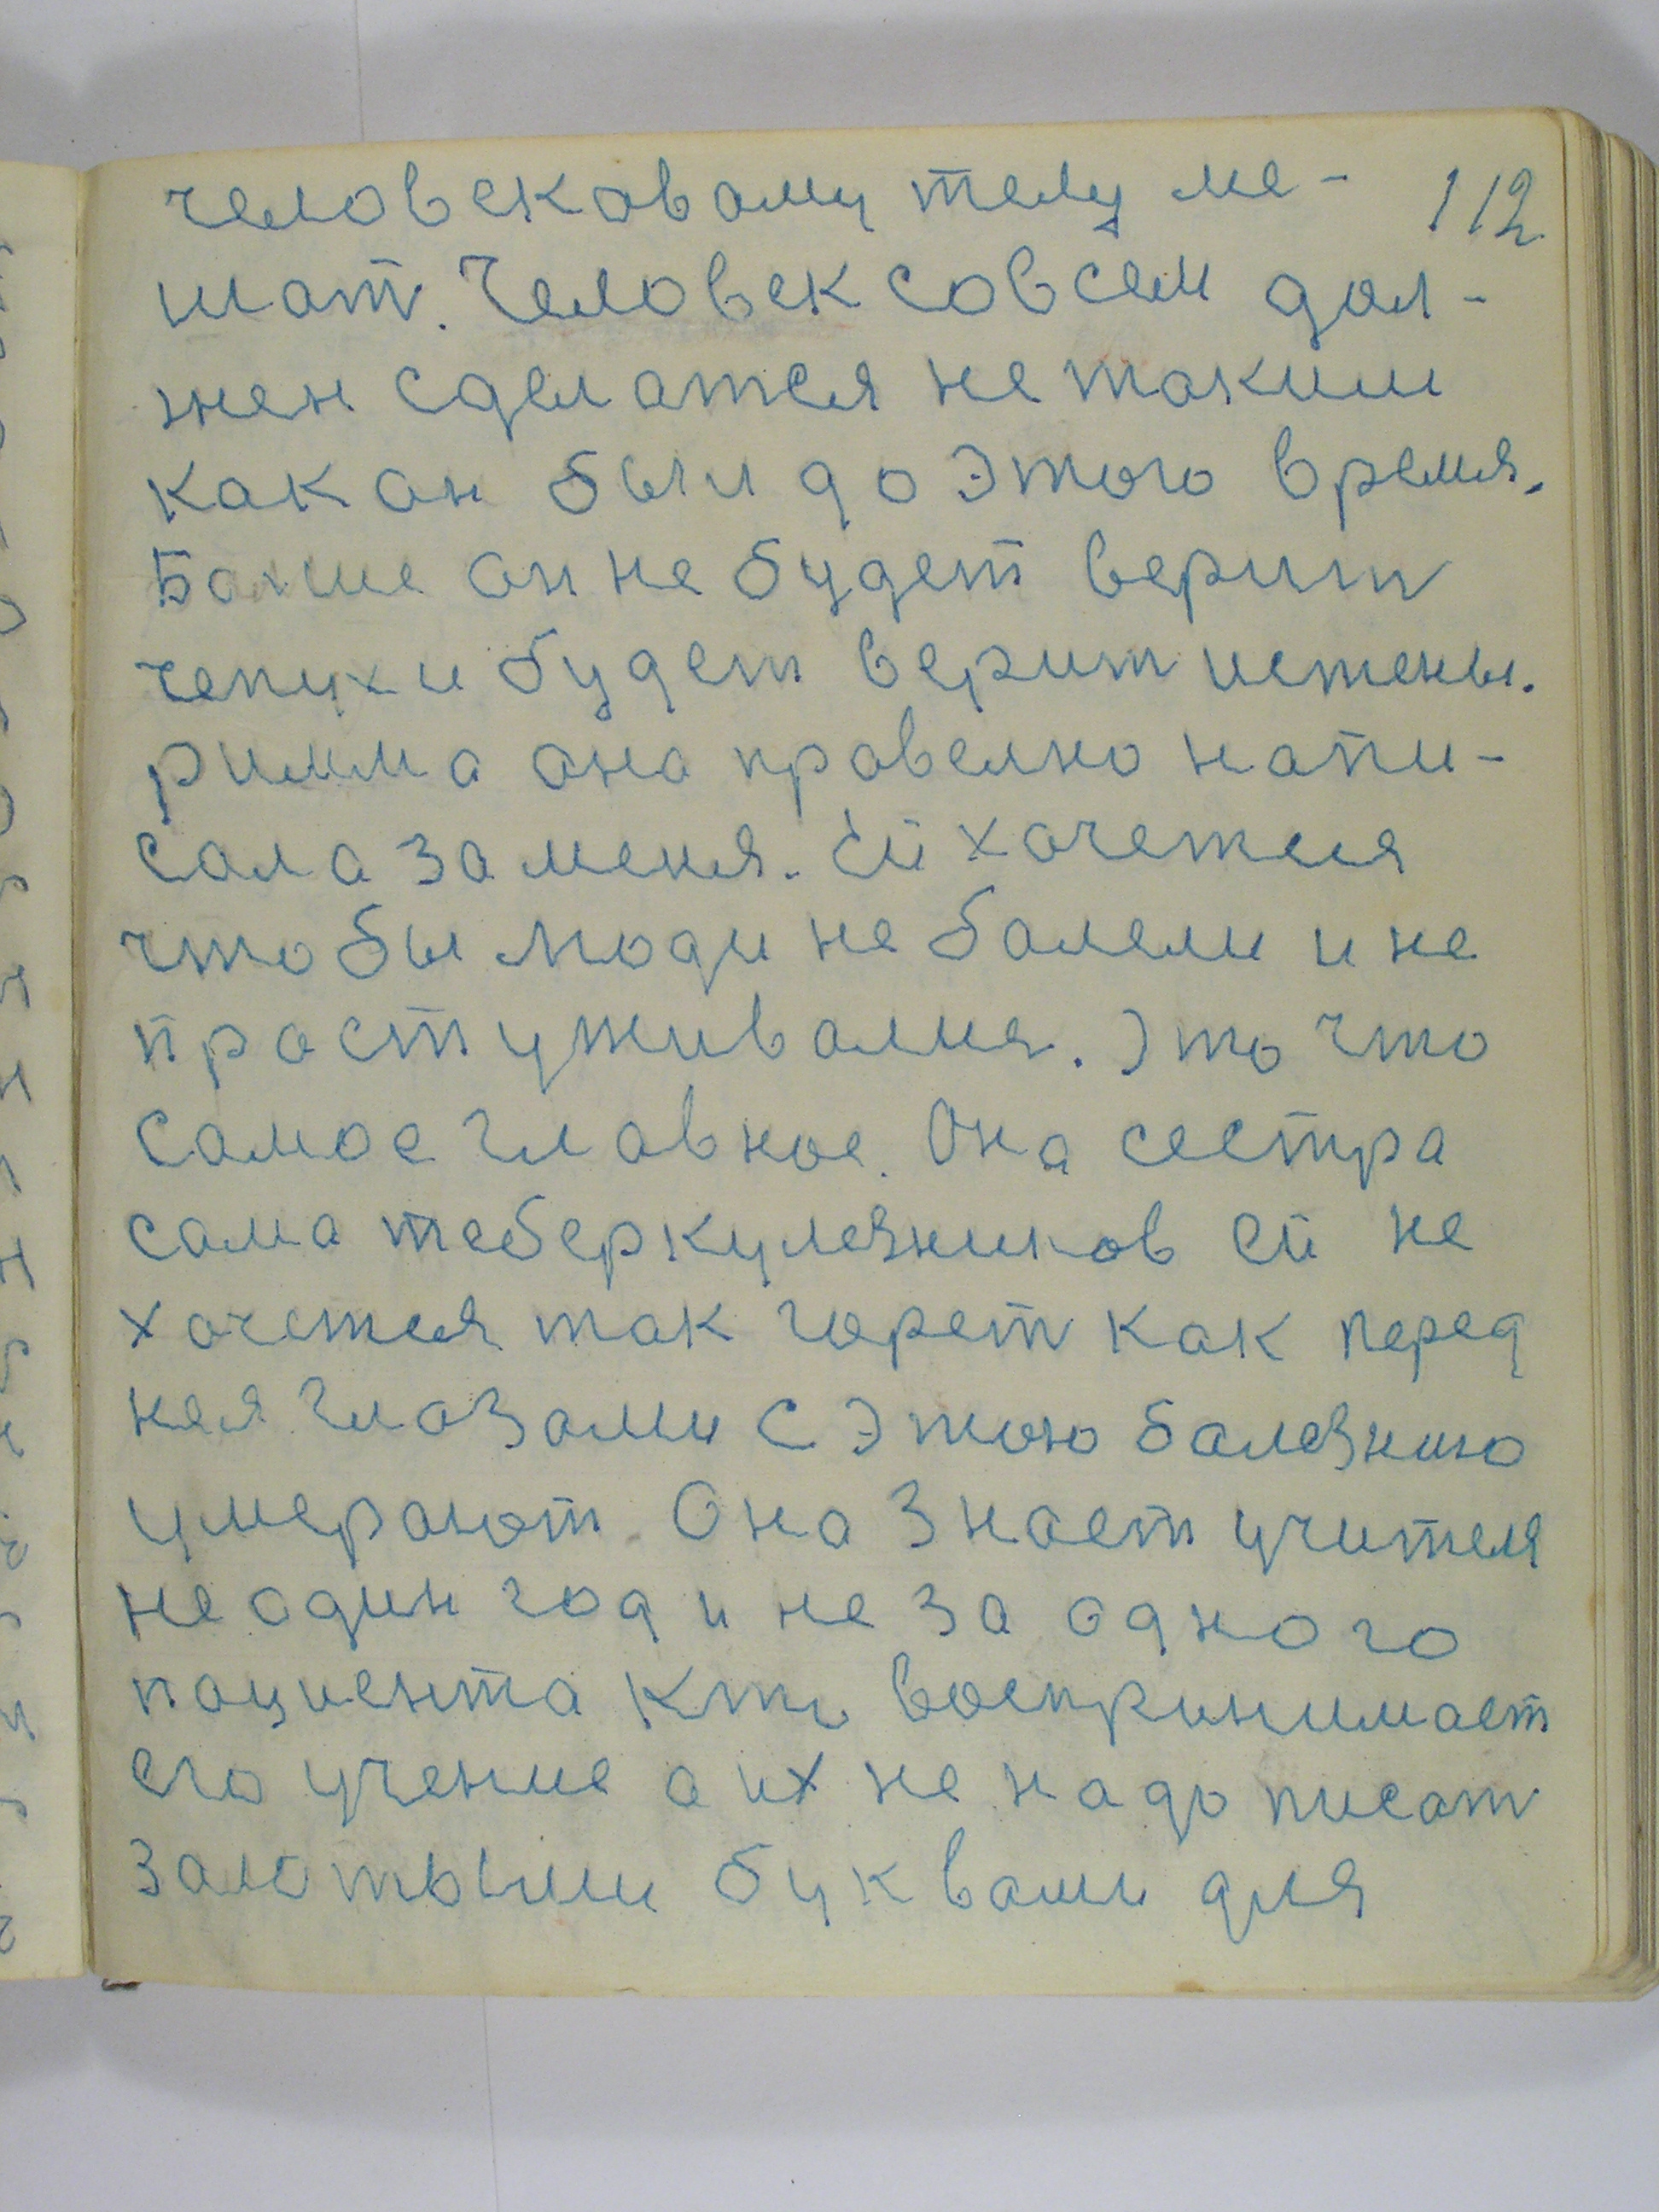 человековаму телу ме- 112
шат. Человек совсем дол-
жен сделатся не таким
как он был до этого время.
Болше он не будет верит
чепухи будет верит истены.
римма она правелно напи-
сала за меня. Ей хочется
чтобы люди не балели и не
прастуживалися. Это что
самое главное. Она сестра
сама теберкулезников ей не
хочется так горет как перед
нея глазами с этою балезнию
умерают. Она знает учителя
не один год и не за одного
пациента кто воспринимает
его учение а их не надо писат
залотыми буквами для